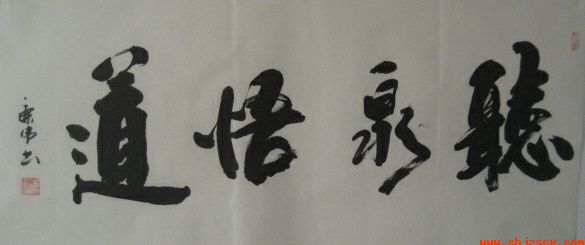 聽泉悟道
www.shjzscw.com